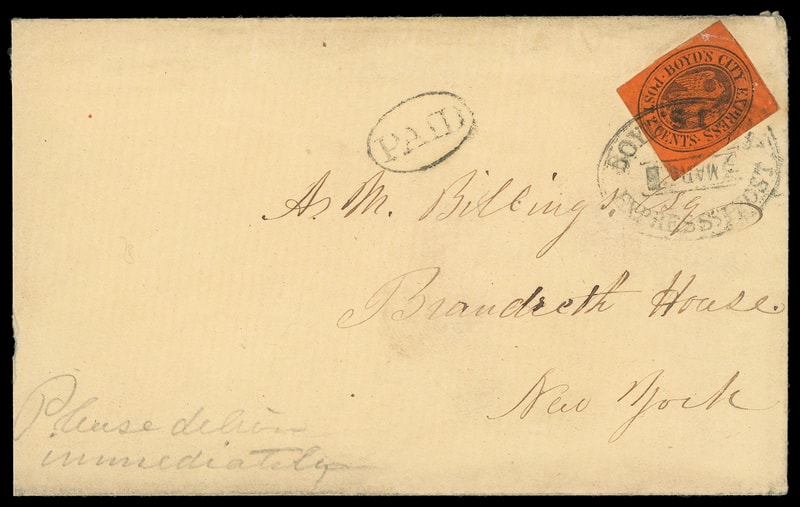 BOYD'S CITY EXPRESS POST
2 CENTS
PAID
EXPRESS
POST
MAR
A. M. Billings. Esq
Brandreth House.
New York
Please deliver
immediately